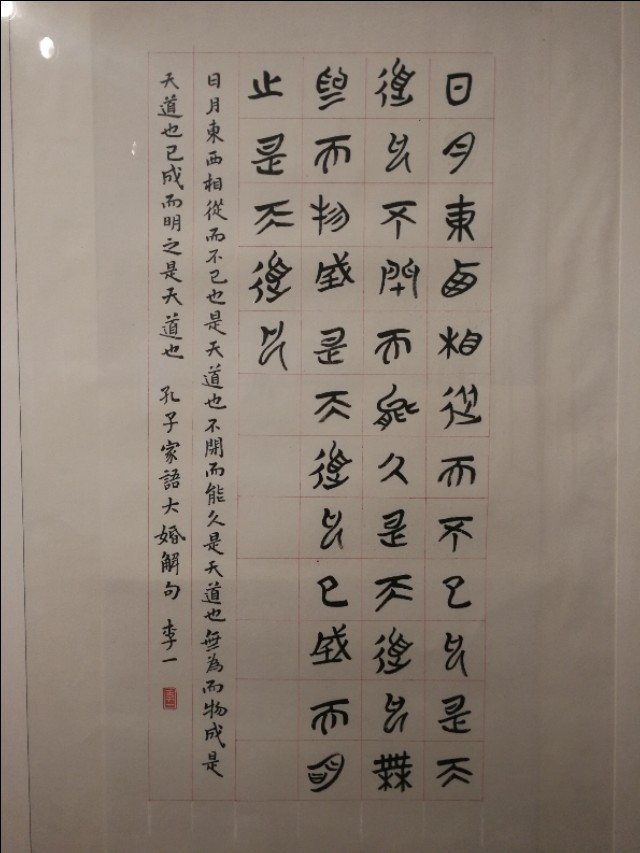 日月東西相從而不已也是天
道也不開而能久是天道也無
為而物成是天道也已成而明
之是天道也
日月東西相從而不已也是天道也不開而能久是天道也無為而物成是
天道也已成而明之是天道也 孔子家語大婚解句 李一